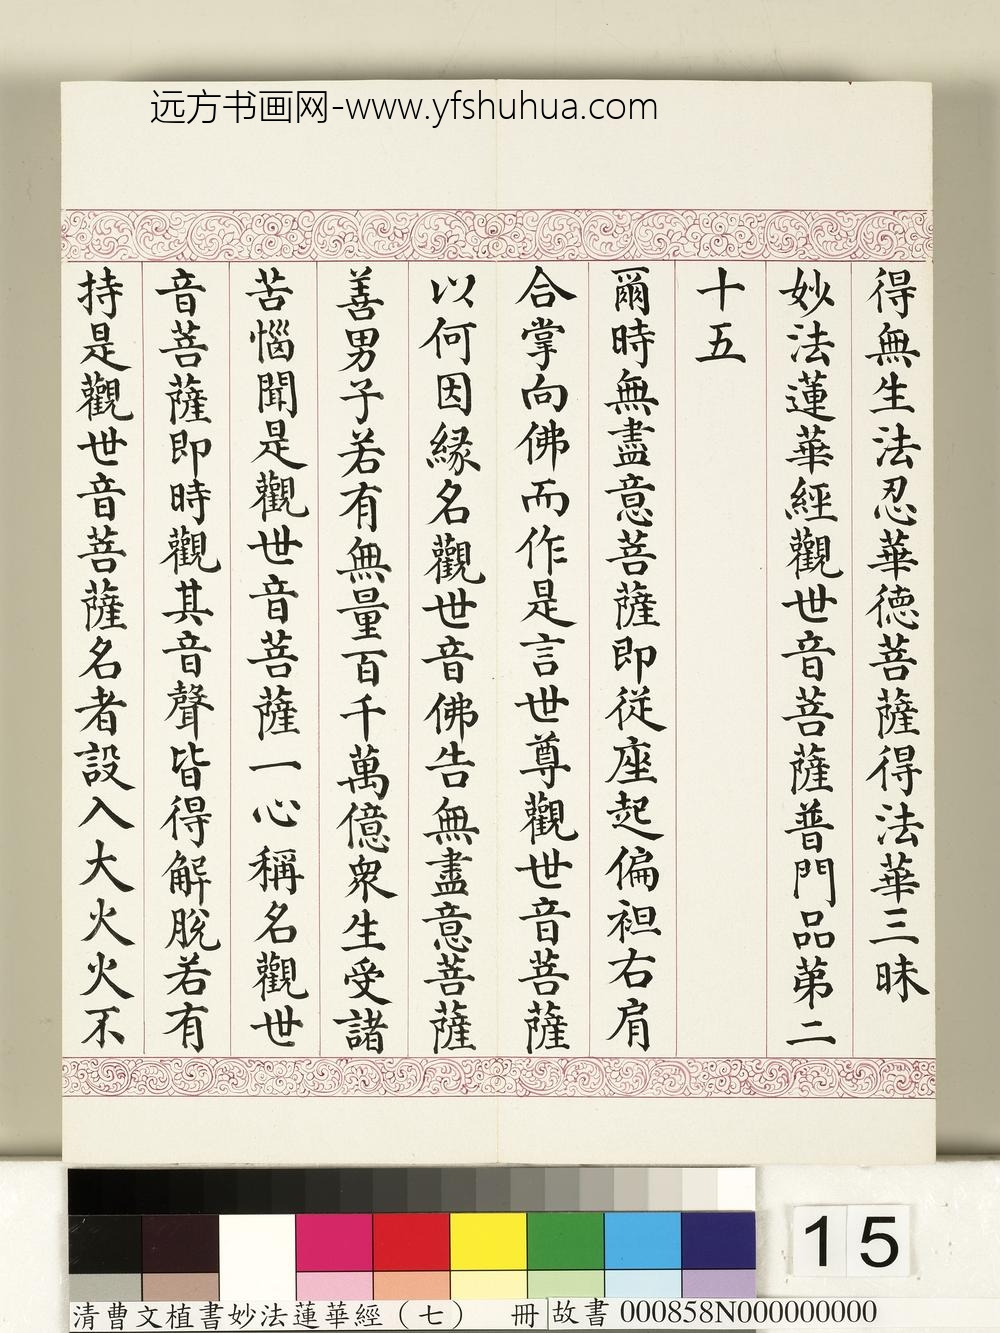 远方书画网-www.yfshuhua.com
得無生法忍華德菩薩得法華三昧
妙法蓮華經觀世音菩薩普門品第二
十五
爾時無盡意菩薩即從座起偏袒右肩
合掌向佛而作是言世尊觀世音菩薩
以何因緣名觀世音佛告無盡意菩薩
善男子若有無量百千萬億眾生受諸
苦惱聞是觀世音菩薩一心稱名觀世
音菩薩即時觀其音聲皆得解脫若有
持是觀世音菩薩名者設入大火火不
15
清曹文植書妙法蓮華經（七） 冊 故書 000858N000000000